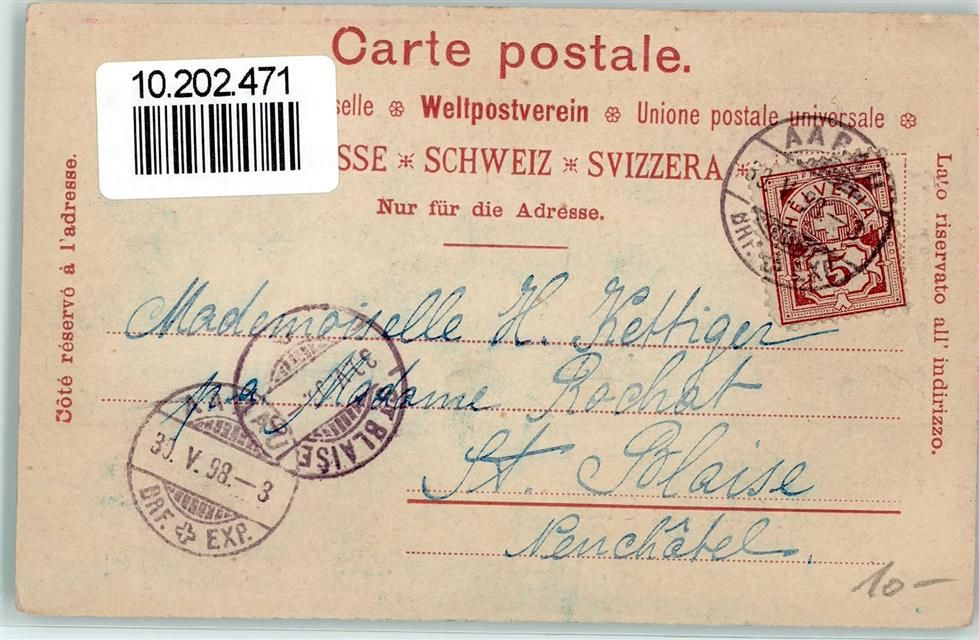 Carte postale.
10.202.471
selle ❀ Weltpostverein ❀ Unione postale universale ❀
SSE * SCHWEIZ * SVIZZERA *
Nur für die Adresse.
Côté reservé à l'adresse.
Lato riservato all' indirizzo.
AAR
BRF. EXP
HELVETIA
5
Mademoiselle H. Kettiger
p. a. Madame Rochat
St. Blaise
Neuchâtel.
31. V.
BLAISE
30. V. 98. – 3
BRF. EXP.
10 –